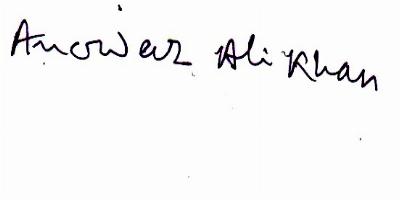 Anowar Ali Khan